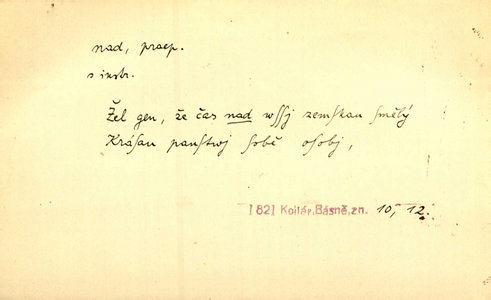 nad, praep.
s instr.
Žel gen, že čas nad wssj zemskau smělý
Krásau panstwj sobě osobj,
1821 Kollár, Básně, zn. 10, 12.